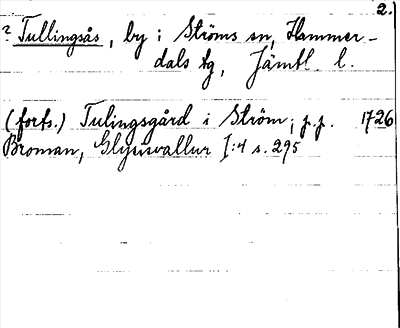 2.
? Tullingsås, by i Ströms sn, Hammer-
dals tg, Jämtl. l.
(forts.) Tulingsgård i Ström; p.p. 1726
Broman, Glysisvallur I:4 s. 295